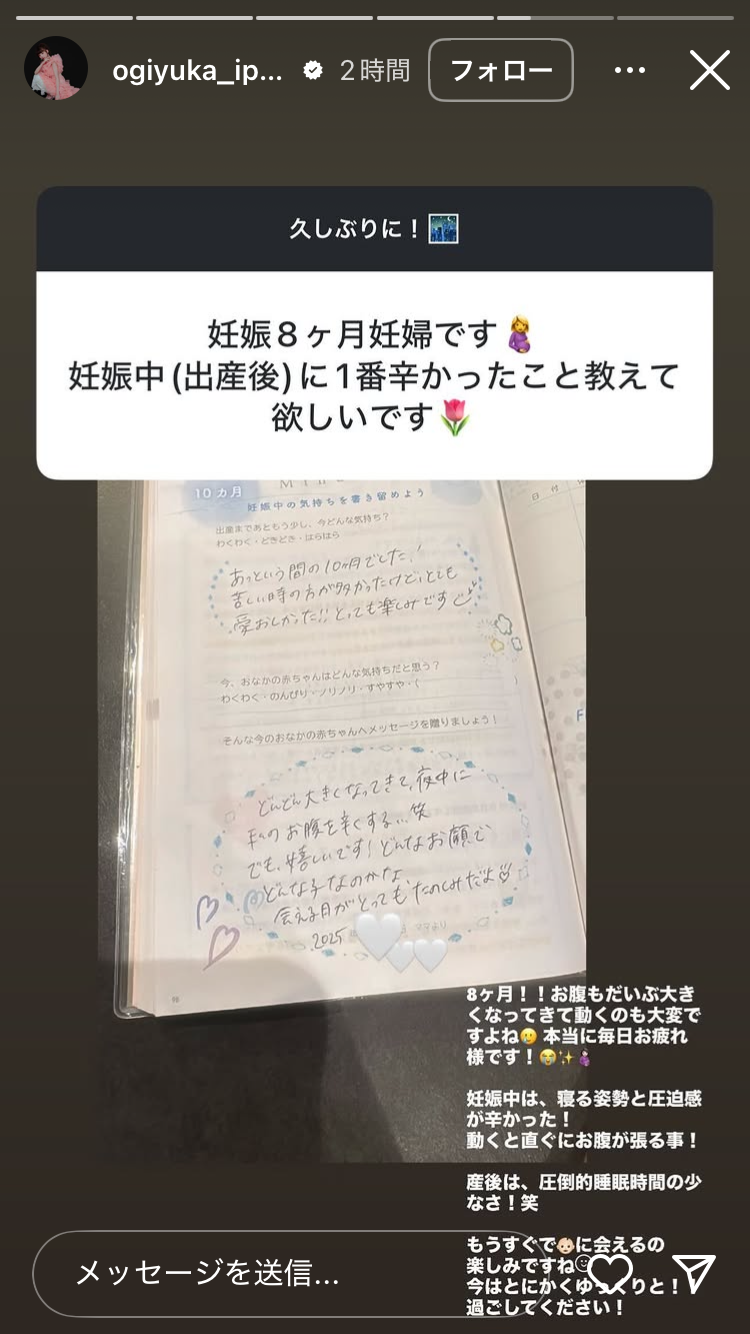 ogiyuka_ip...
2時間
フォロー
久しぶりに！🌃
妊娠8ヶ月妊婦です🤰
妊娠中(出産後)に1番辛かったこと教えて
欲しいです🌷
10カ月
妊娠中の気持ちを書き留めよう
日 付
出産まであともう少し、今どんな気持ち？
わくわく・どきどき・はらはら
あっという間の10ヶ月でした！
苦しい時の方が多かったけど、とても
愛おしかった!!とっても楽しみです
今、おなかの赤ちゃんはどんな気持ちだと思う？
わくわく・のんびり・ノリノリ・すやすや・(
)
そんな今のおなかの赤ちゃんへメッセージを贈りましょう！
どんどん大きくなってきて、夜中に
私のお腹を辛くする...笑
でも、嬉しいです！どんなお顔で
どんな子なのかな
会える日がとっても、たのしみだよ
2025
ママより
98
8ヶ月！！お腹もだいぶ大き
くなってきて動くのも大変で
すよね🥲 本当に毎日お疲れ
様です！😭✨🤰🏻
妊娠中は、寝る姿勢と圧迫感
が辛かった！
動くと直ぐにお腹が張る事！
産後は、圧倒的睡眠時間の少
なさ！笑
もうすぐで👶🏻に会えるの
楽しみですね
今はとにかくゆっくりと！
過ごしてください！
メッセージを送信...